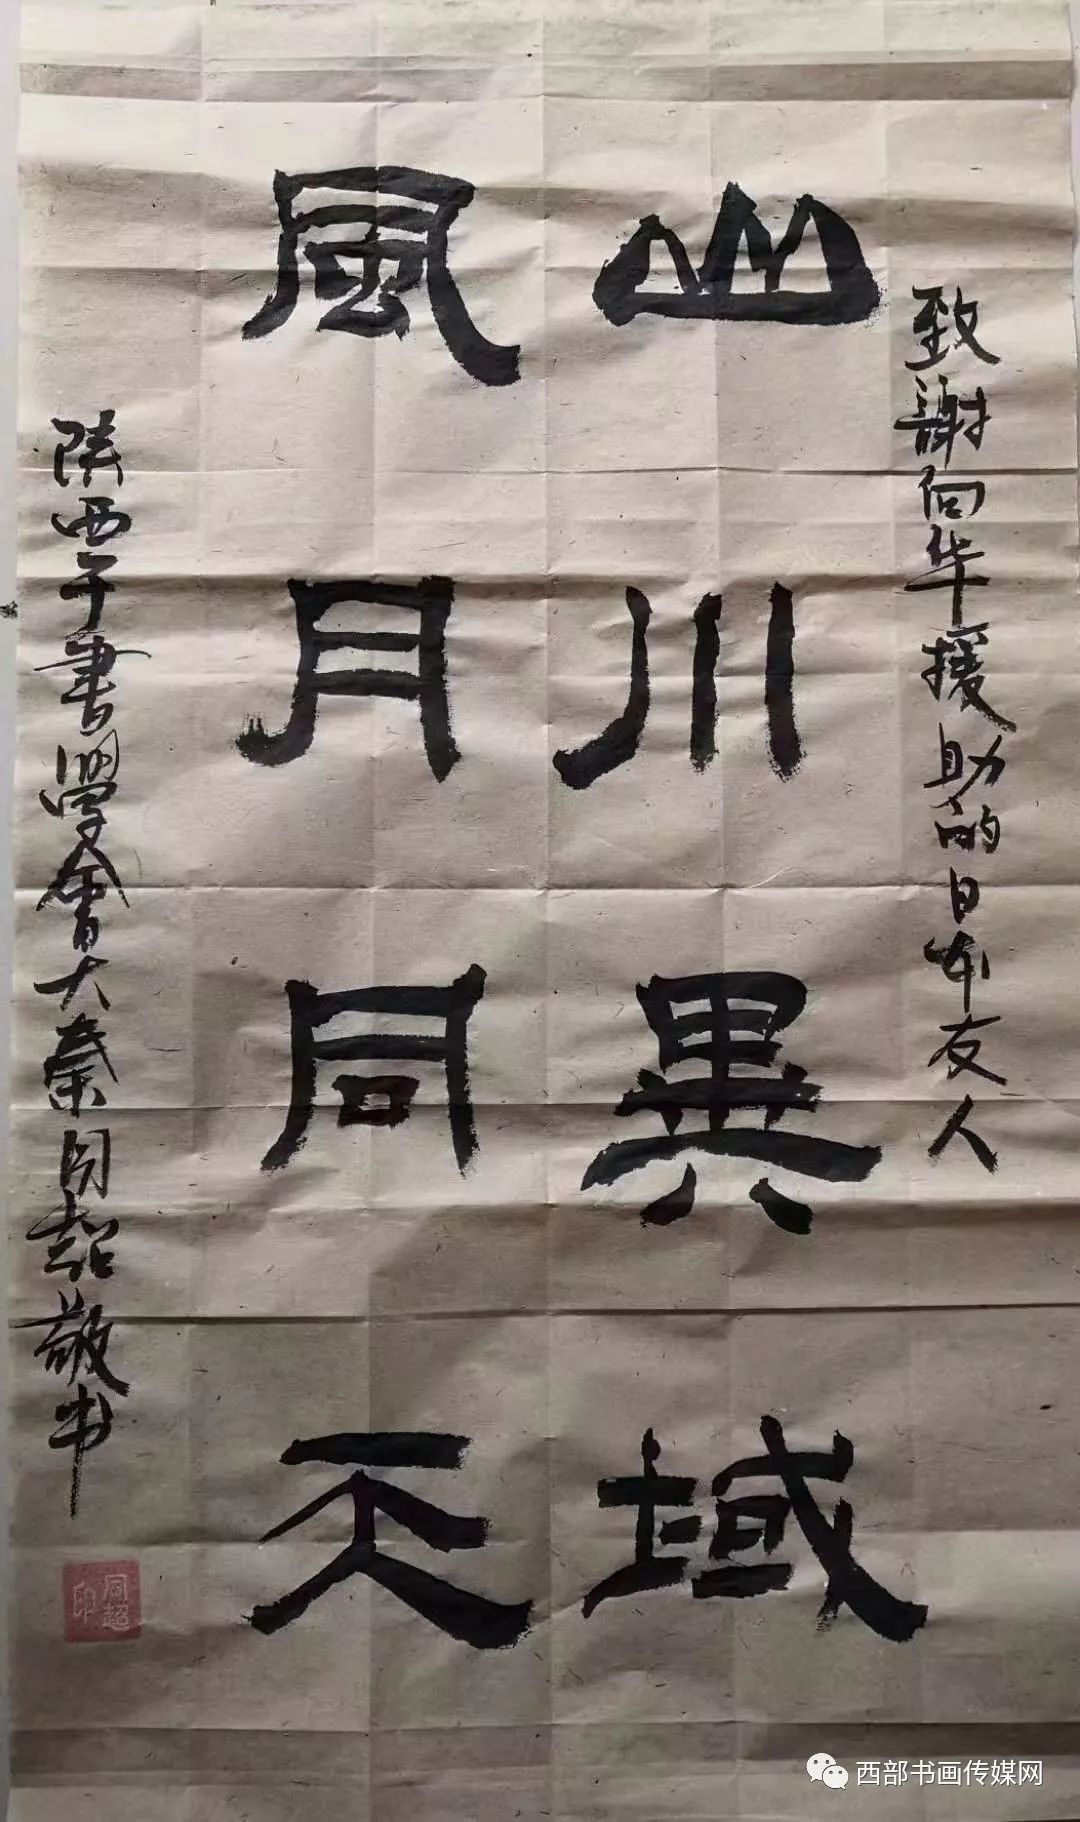 致谢向华援助的日本友人
山川異域
風月同天
陕西于書學會大秦同超敬书
同超印
西部书画传媒网